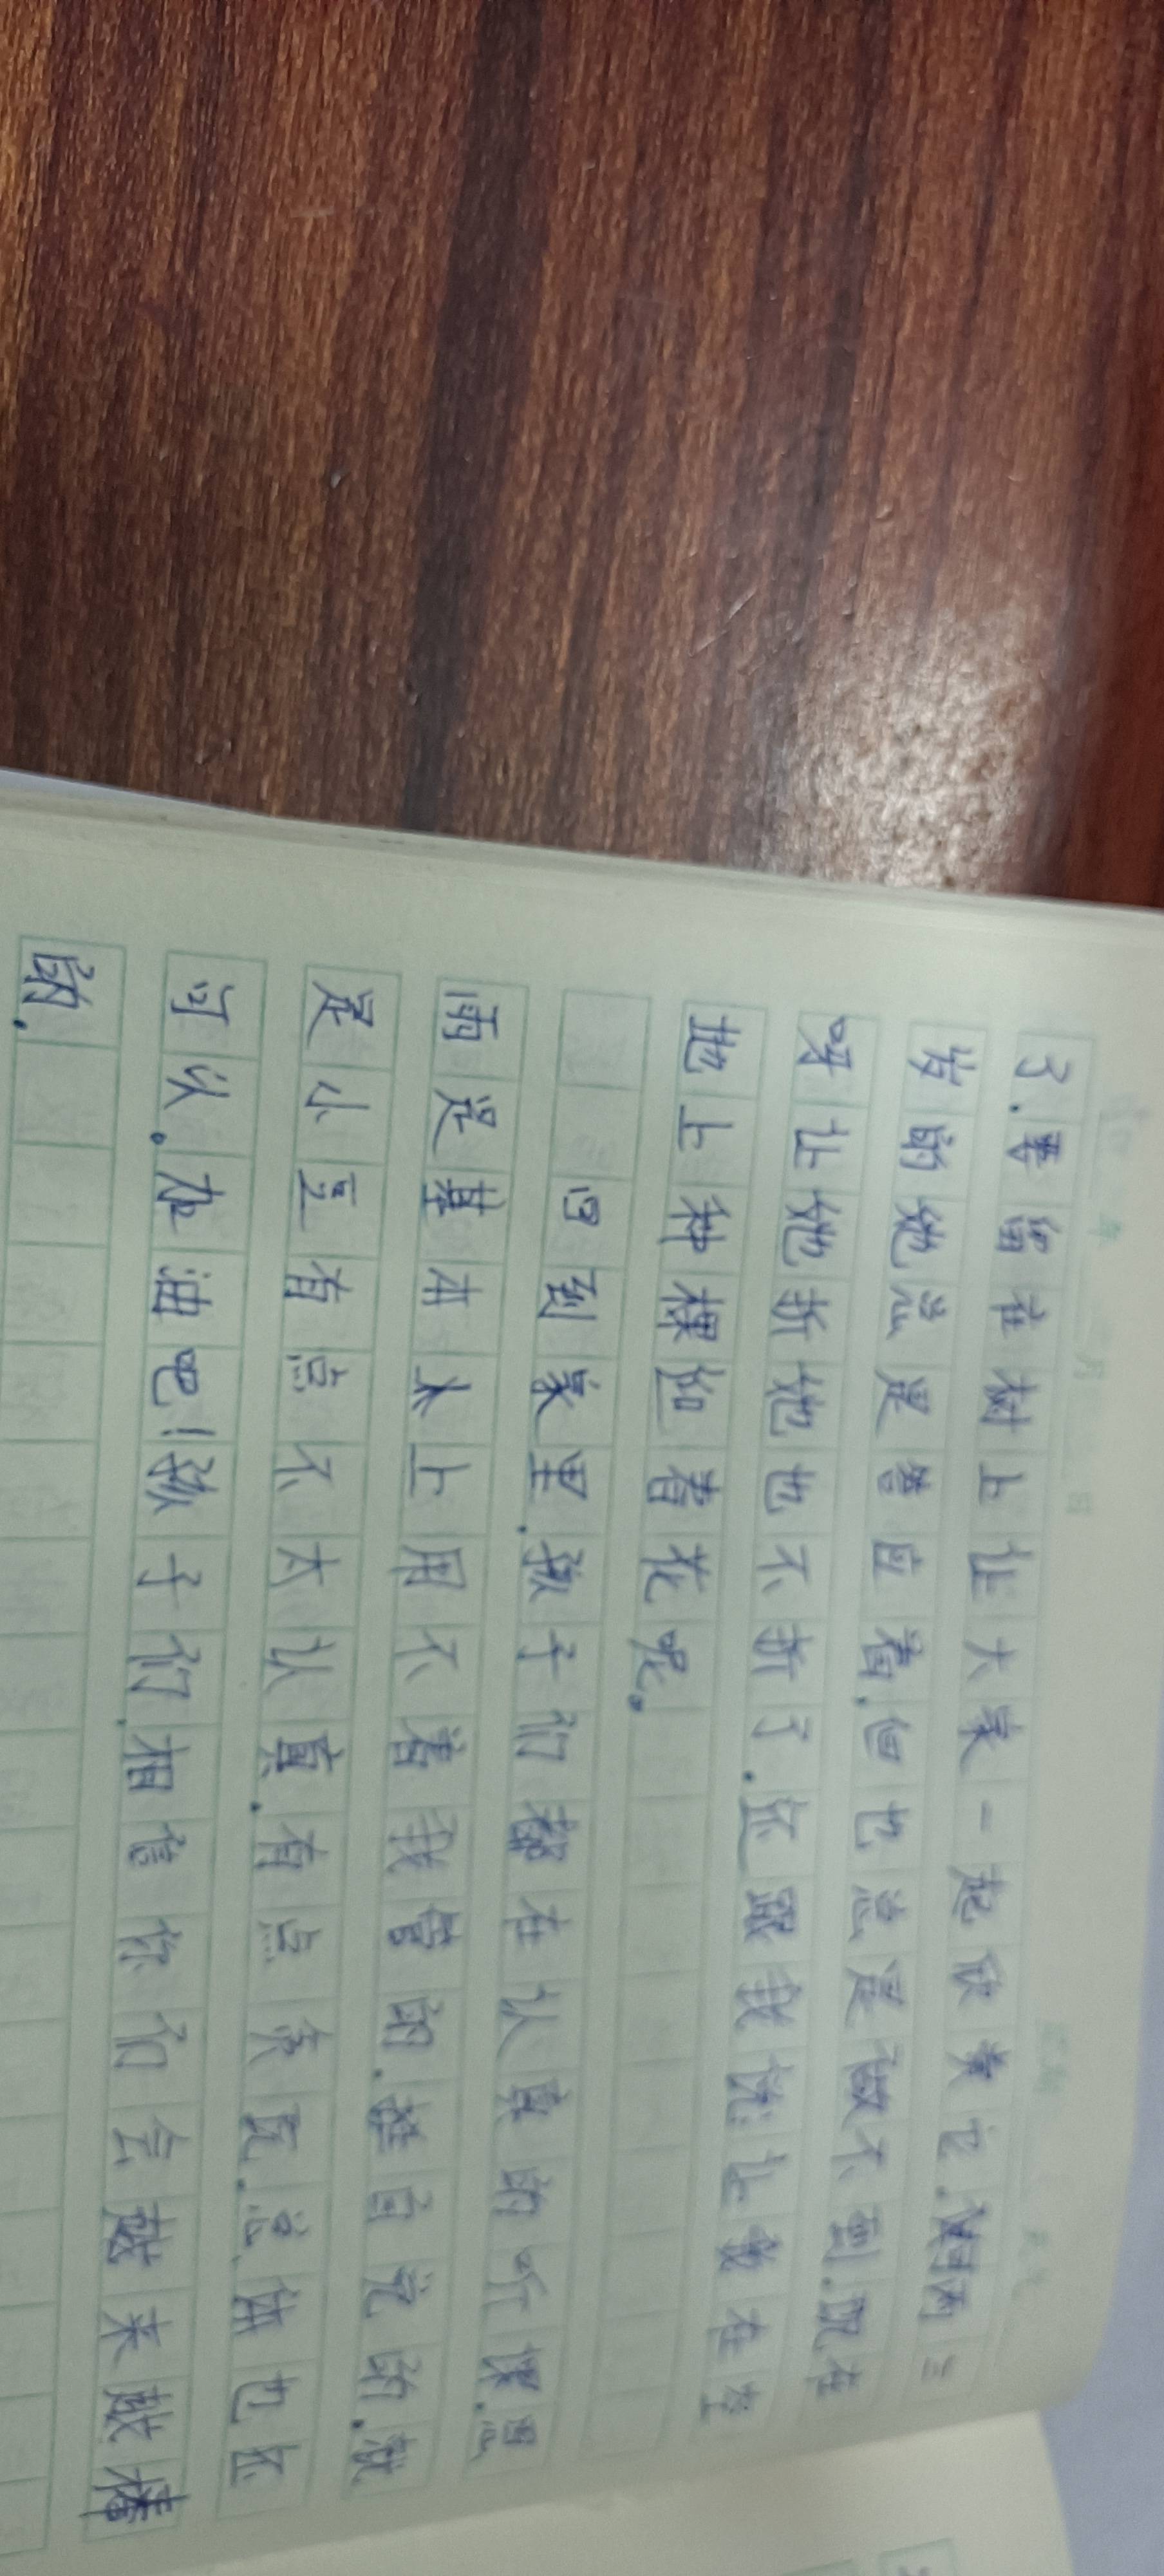 了.要留在树上让大家一起欣赏它.两三
岁的她总是答应着,但也总是做不到.现在
呀让她折她也不折了.还跟我说:让我在空
地上种棵迎春花呢。
回到家里.孩子们都在认真的听课.思
雨是基本上用不着我管的.挺自觉的.就
是小豆有点不太认真.有点贪玩.总体也还
可以。加油吧!孩子们,相信你们会越来越棒
的.